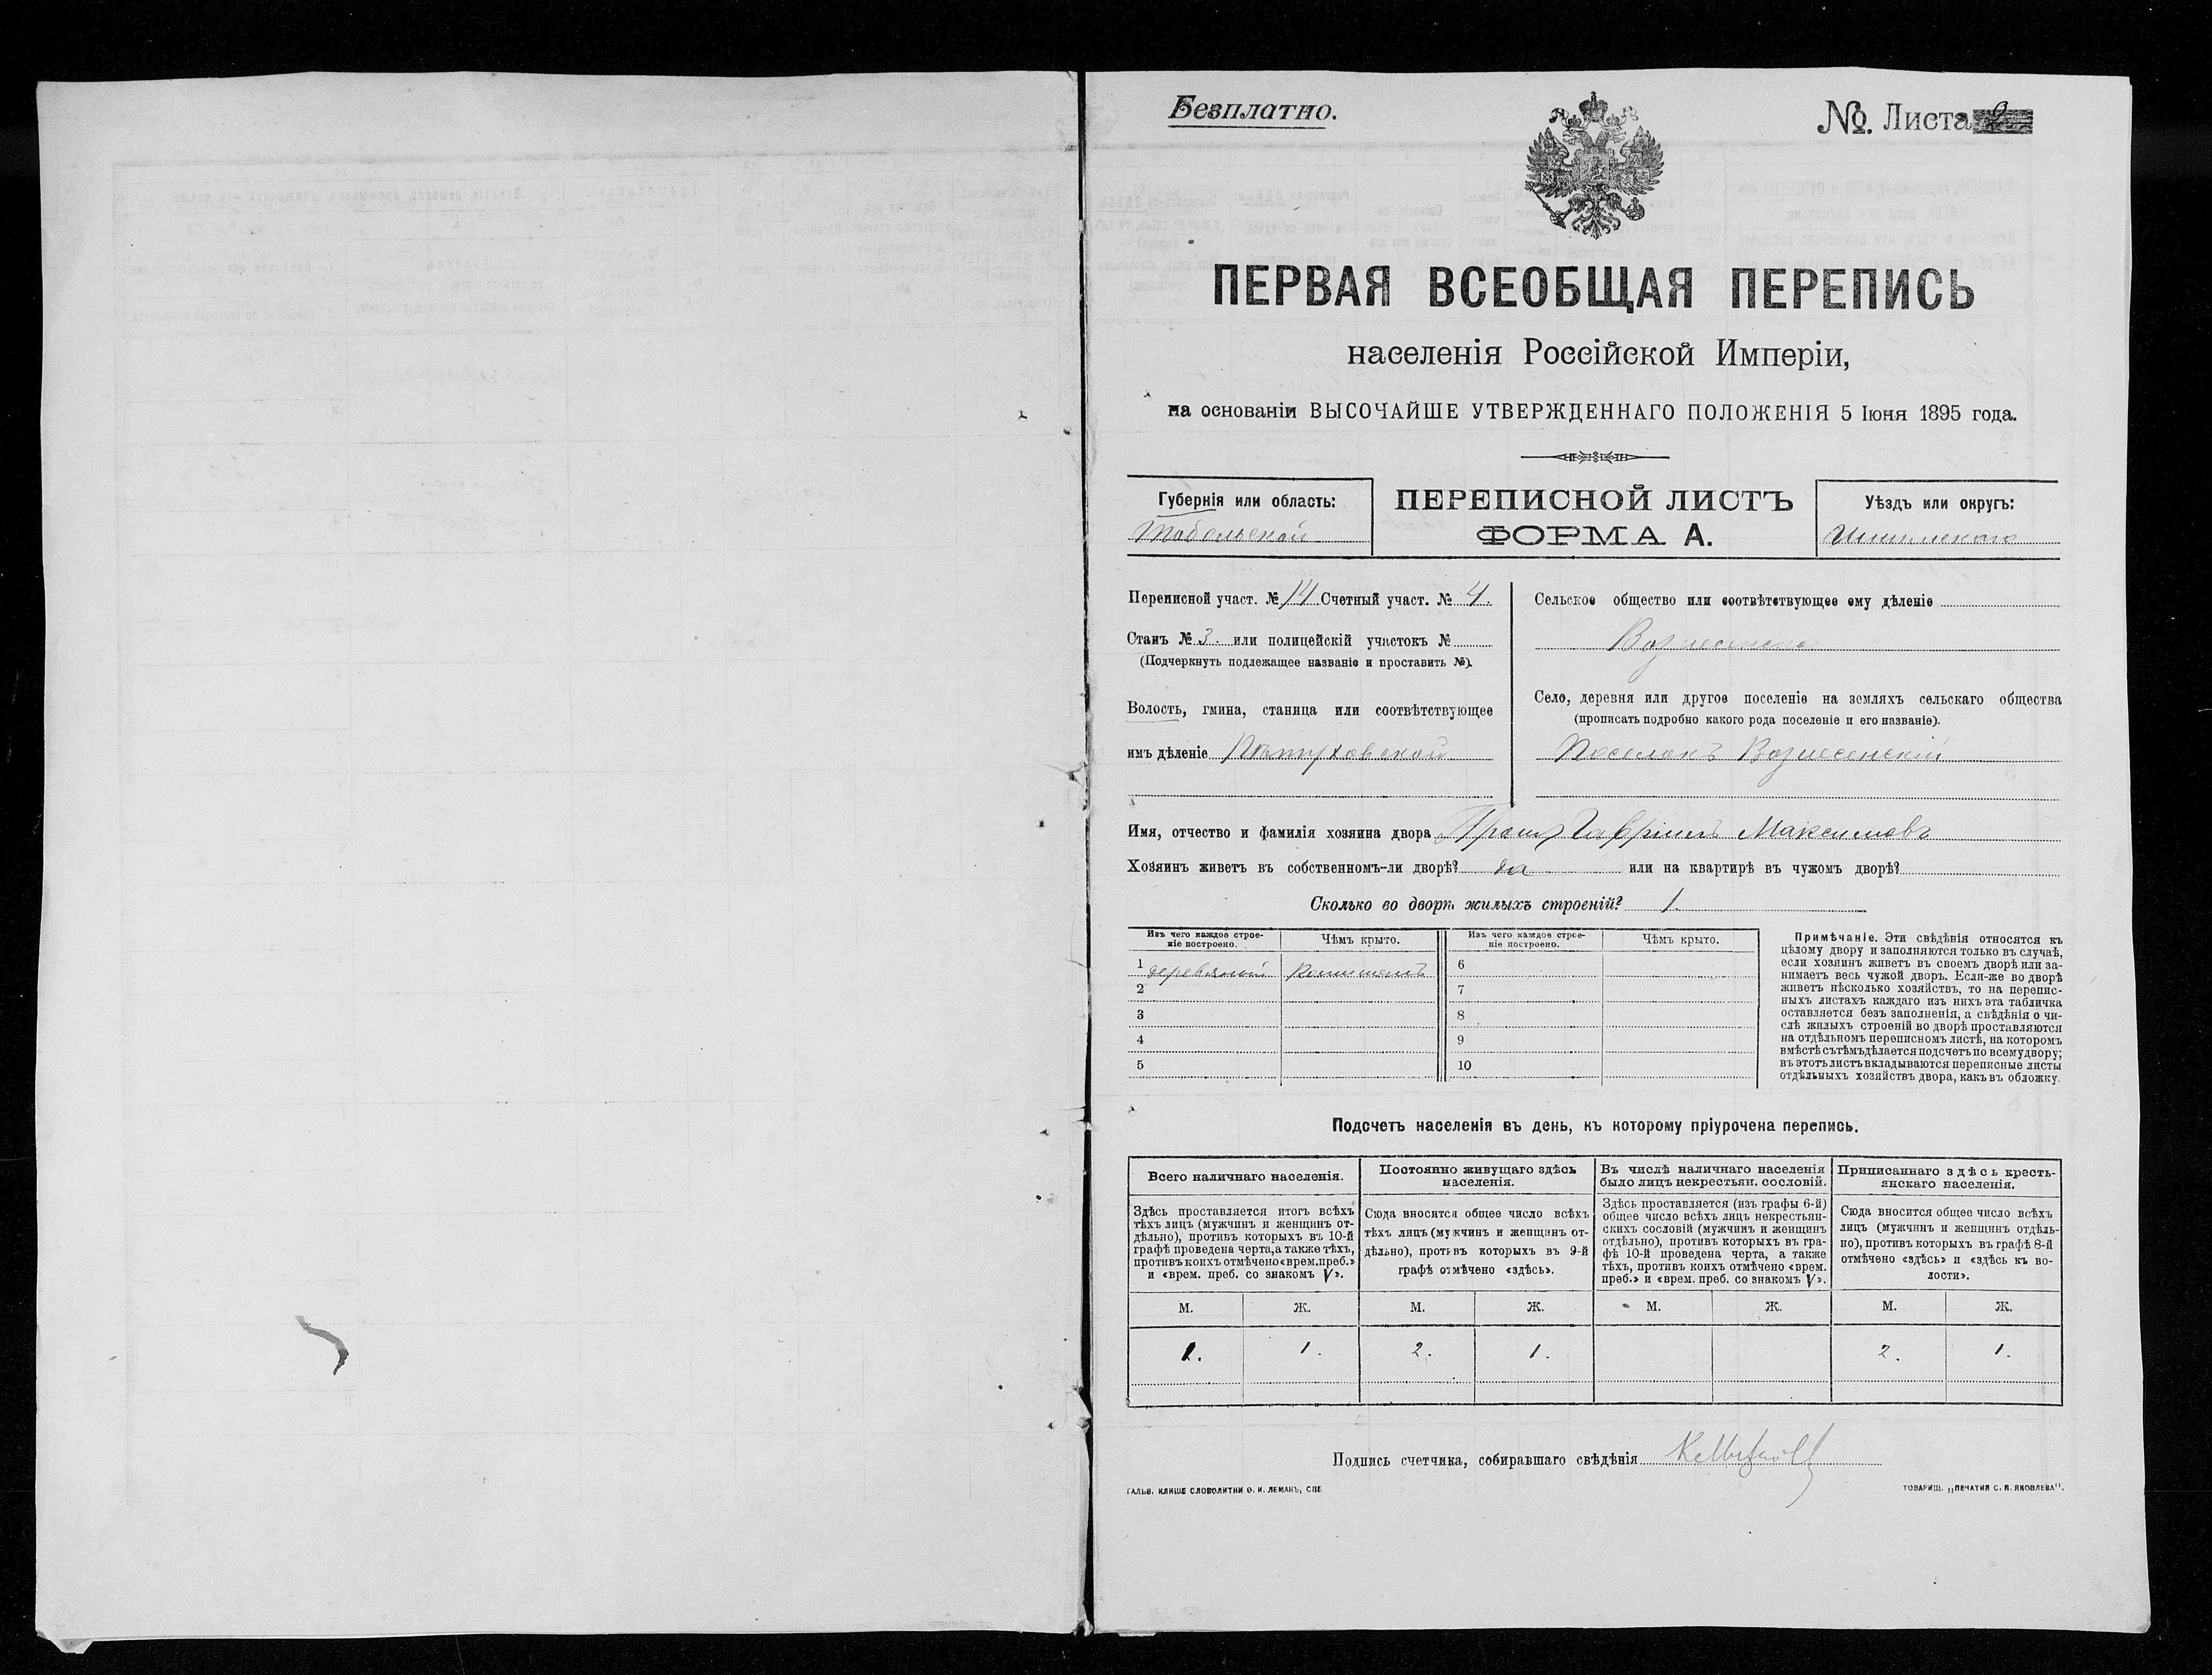 Безплатно.
№. Листа
ПЕРВАЯ ВСЕОБЩАЯ ПЕРЕПИСЬ
населенія Россійской Имперіи,
на основаніи ВЫСОЧАЙШЕ УТВЕРЖДЕННАГО ПОЛОЖЕНІЯ 5 Іюня 1895 года.
Губернія или область:
Тобольской
ПЕРЕПИСНОЙ ЛИСТЪ
ФОРМА А.
Уѣздъ или округъ:
Ишимскаго
Переписной участ. № 14 Счетный участ. № 4.
Станъ № 3. или полицейскій участокъ №
(Подчеркнуть подлежащее названіе и проставить №).
Волость, гмина, станица или соотвѣтствующее
имъ дѣленіе
Сельское общество или соотвѣтствующее ему дѣленіе
Село, деревня или другое поселеніе на земляхъ сельскаго общества
(прописать подробно какого рода поселеніе и его названіе).
Поселокъ Вознесенскій
Имя, отчество и фамилія хозяина двора Гавріилъ Максимовъ
Хозяинъ живетъ въ собственномъ-ли дворѣ? да или на квартирѣ въ чужомъ дворѣ?
Сколько во дворѣ жилыхъ строеній? 1.
Изъ чего каждое строе-
ніе построено.
Чѣмъ крыто.
Изъ чего каждое строе-
ніе построено.
Чѣмъ крыто.
1 6
2 7
3 8
4 9
5 10
Примѣчаніе. Эти свѣдѣнія относятся къ
цѣлому двору и заполняются только въ случаѣ,
если хозяинъ живетъ въ своемъ дворѣ или за-
нимаетъ весь чужой дворъ. Если-же во дворѣ
живетъ нѣсколько хозяйствъ, то на перепис-
ныхъ листахъ каждаго изъ нихъ эта табличка
оставляется безъ заполненія, а свѣдѣнія о чи-
слѣ жилыхъ строеній во дворѣ проставляются
на отдѣльномъ переписномъ листѣ, на которомъ
вмѣстѣ съ тѣмъ дѣлается подсчетъ по всему двору;
въ этотъ листъ вкладываются переписные листы
отдѣльныхъ хозяйствъ двора, какъ въ обложку.
Подсчетъ населенія въ день, къ которому пріурочена перепись.
Всего наличнаго населенія.
Постоянно живущаго здѣсь
населенія.
Въ числѣ наличнаго населенія
было лицъ некрестьян. сословій.
Приписаннаго здѣсь кресть-
янскаго населенія.
Здѣсь проставляется итогъ всѣхъ
тѣхъ лицъ (мужчинъ и женщинъ от-
дѣльно), противъ которыхъ въ 10-й
графѣ проведена черта, а также тѣхъ,
противъ коихъ отмѣчено «врем. преб.»
и «врем. преб. со знакомъ V».
Сюда вносится общее число всѣхъ
тѣхъ лицъ (мужчинъ и женщинъ от-
дѣльно), противъ которыхъ въ 9-й
графѣ отмѣчено «здѣсь».
Здѣсь проставляется (изъ графы 6-й)
общее число всѣхъ лицъ некрестьян-
скихъ сословій (мужчинъ и женщинъ
отдѣльно), противъ которыхъ въ гра-
фѣ 10-й проведена черта, а также
тѣхъ, противъ коихъ отмѣчено «врем.
преб.» и «врем. преб. со знакомъ V».
Сюда вносится общее число всѣхъ
лицъ (мужчинъ и женщинъ отдѣль-
но), противъ которыхъ въ графѣ 8-й
отмѣчено «здѣсь» и «здѣсь къ во-
лости».
М. Ж. М. Ж. М. Ж. М. Ж.
1. 2. 1. 2. 1.
Подпись счетчика, собиравшаго свѣдѣнія
ГАЛЬВ. КЛИШЕ СЛОВОЛИТНИ О. И. ЛЕМАНЪ, СПБ
ТОВАРИЩ. „ПЕЧАТНЯ С. П. ЯКОВЛЕВА".